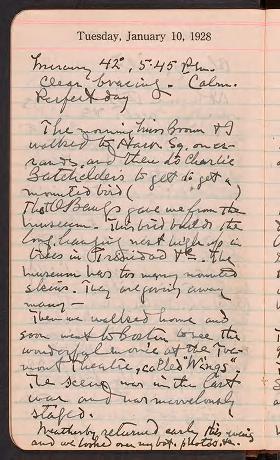 Tuesday, January 10, 1928
Mercury 42°, 5.45 P.M.
Clear bracing. Calm.
Perfect day
The morning Miss Brown & I
walked to Harv. Sq. on er-
rands, and then to Charlie
Batchelders to get a
mounted bird (        )
that O. Bangs gave me from the
museum. This bird builds the
long, hanging nest high up in
trees in Trinidad &c. The
museum has too many mounted
skins. They are giving away
many —
Then we walked home and
soon went to Boston to see the
wonderful movie at the Tre-
mont Theatre, called "Wings"
The scene was in the last
war and was marvelously
staged.
Weatherby returned early this evening
and we looked over my bot. photos &c.